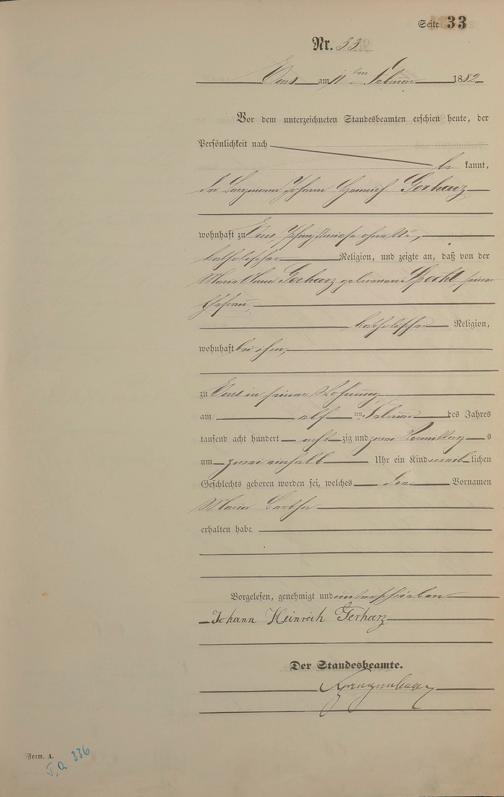 Seite 33
Nr. 33
Ems am 11ten Februar 1882
Vor dem unterzeichneten Standesbeamten erschien heute, der
Persönlichkeit nach
be kannt,
der Bergmann Johann Heinrich Gerharz
wohnhaft zu Ems
katholischer Religion, und zeigte an, daß von der
Maria Anna Gerharz geborenen seiner
Ehefrau,
katholischer Religion,
wohnhaft bei ihm,
zu Ems in seiner Wohnung
am elf ten Februar des Jahres
tausend acht hundert acht zig und zwei Vormittags
um zwei einhalb Uhr ein Kind weiblichen
Geschlechts geboren worden sei, welches den Vornamen
Maria
erhalten habe.
Vorgelesen, genehmigt und unterschrieben
Johann Heinrich Gerharz
Der Standesbeamte.
Form. A.